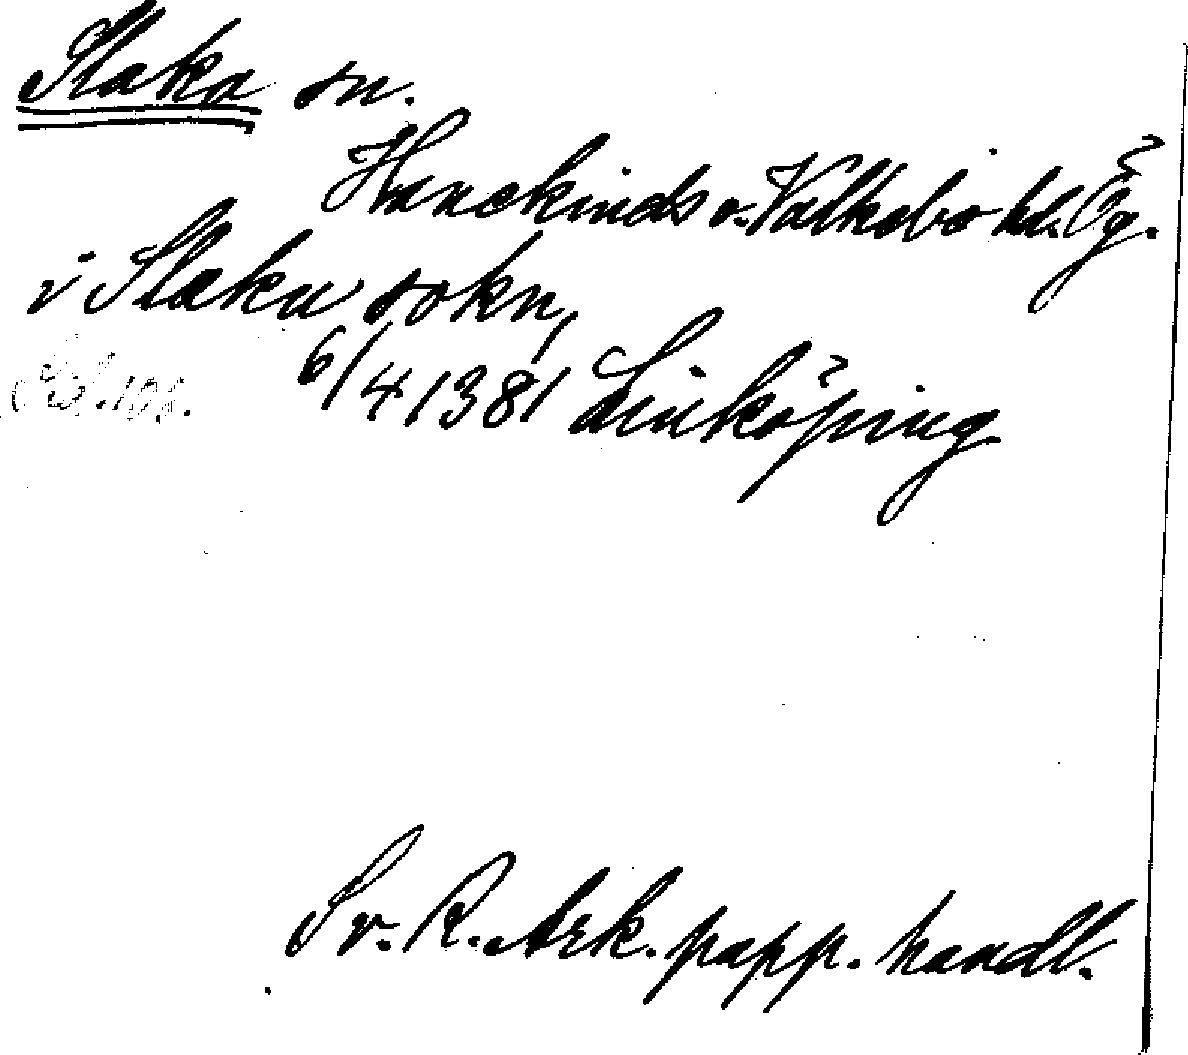 Slaka sn.
Hanekinds o. Valkebo hd. Ög.
i Slaka sokn,
6/4 1381 Linköping
Sv. R. Ark. papp. handl.